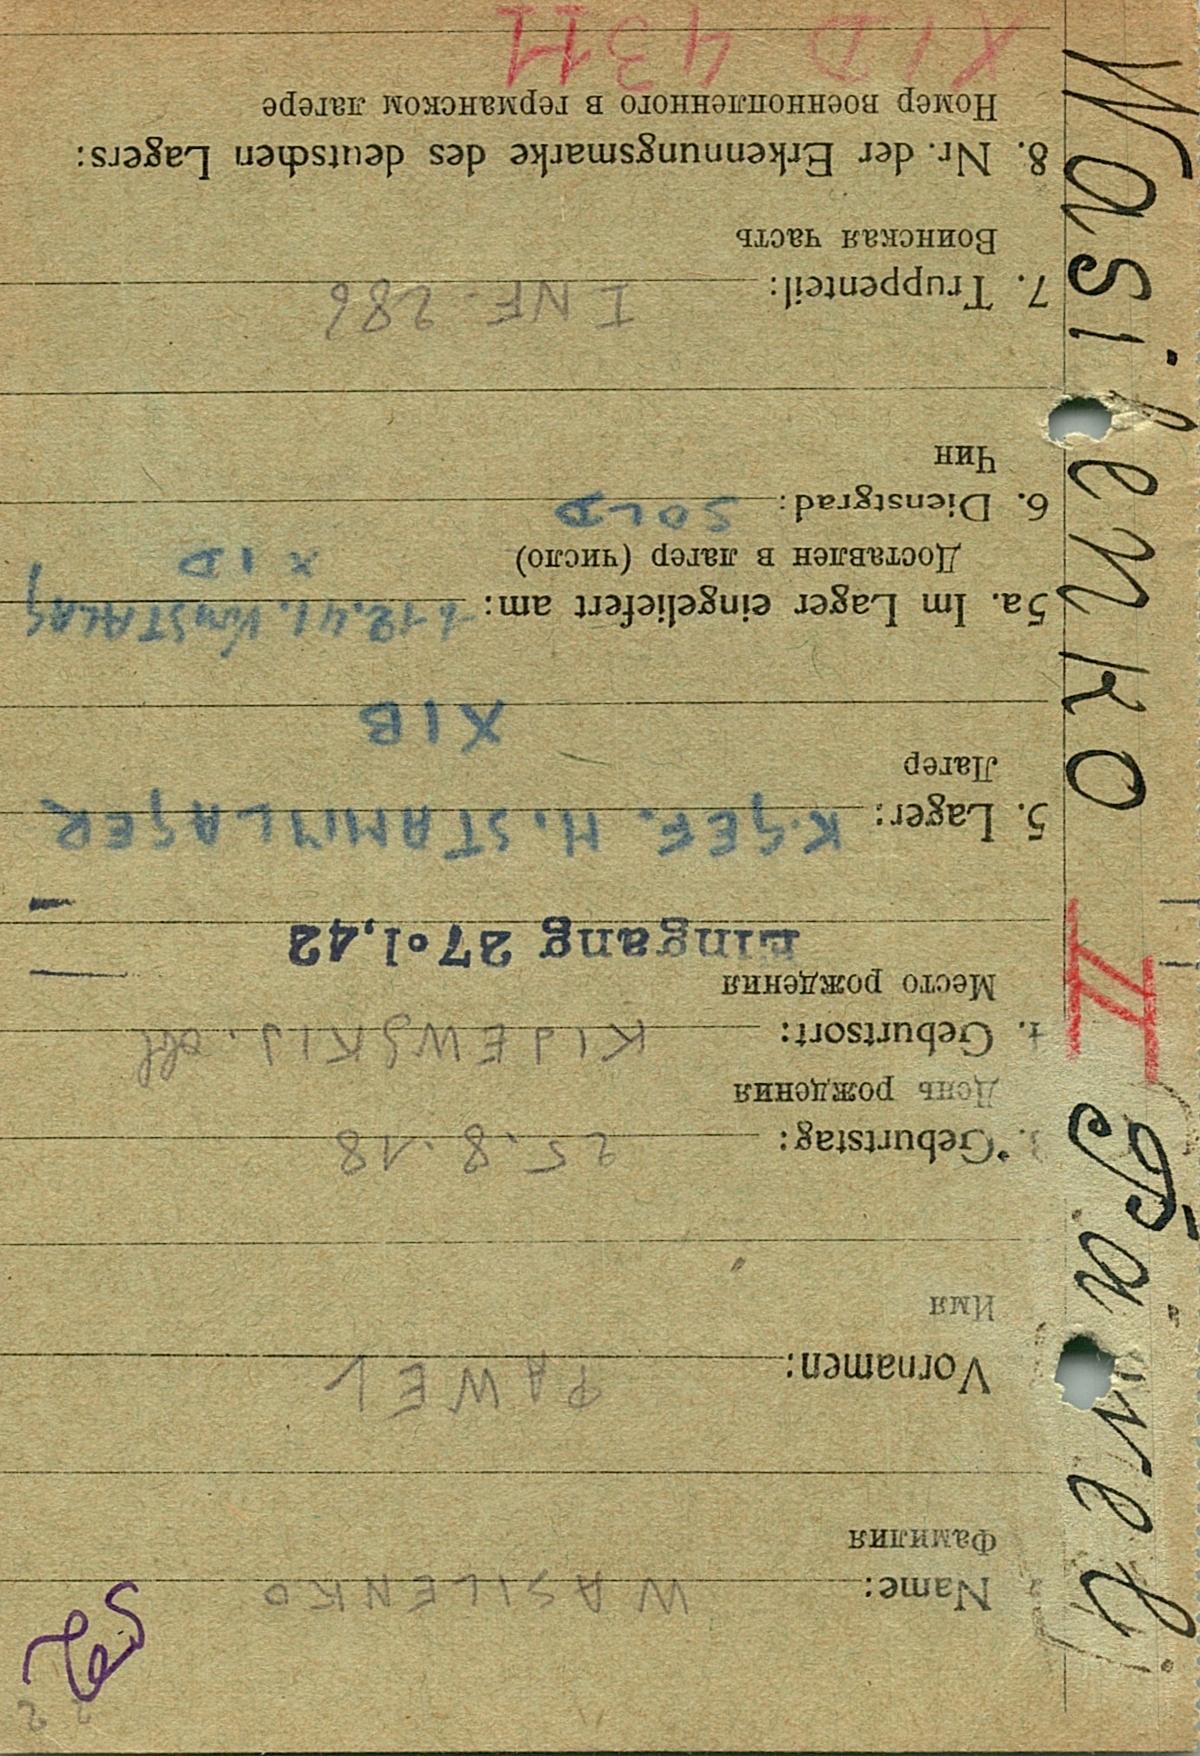 Wasilenko II Pawel
Name: WASILENKO
Фамилия
Vornamen: PAWEL
Имя
3. Geburtstag: 25.8.18
День рождения
4. Geburtsort: KIJEWSKIJ.
Место рождения
Eingang 27.1.42
5. Lager: K.GEF. M. STAMMLAGER
Лагер
XIB
5a. Im Lager eingeliefert am: 1.12.41. STALAG
Доставлен в лагер (число) XID
6. Dienstgrad: SOLD
Чин
7. Truppenteil: INF. 286
Воинская часть
8. Nr. der Erkennungsmarke des deutschen Lagers:
Номер военнопленного в германском лагере
XID 4311